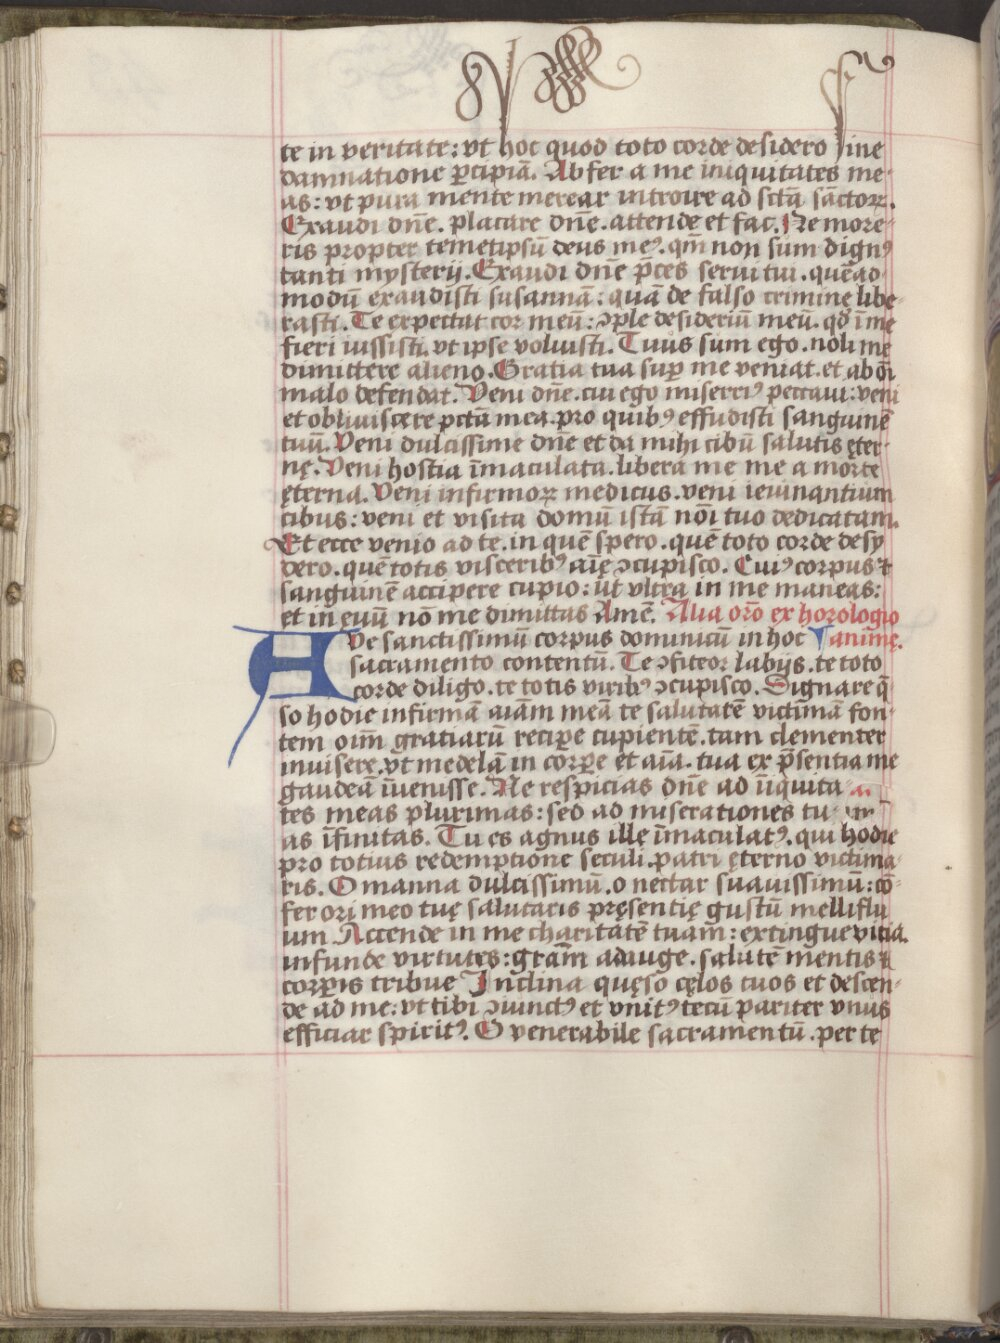 te in veritate: vt hoc quod toto corde desidero sine
damnatione ꝑcipiā. Abfer a me iniquitates me-
as: vt pura mente merear introire ad sctā sāctoꝝ.
Exaudi dn̄e. placare dn̄e. attende et fac. Ne more-
ris propter temetipsū deus meꝰ. qm̄ non sum dignꝰ
tanti mysterij. Exaudi dn̄e p̄ces serui tui. quēad
modū exaudisti susannā: quā de falso crimine libe-
rasti. Te expectat cor meū: ꝯple desideriū meū. qđ ī me
fieri iussisti. vt ipse voluisti. Tuus sum ego. noli me
dimittere alieno. Gratia tua suꝑ me veniat. et ab oī
malo defendat. Veni dn̄e. cui ego miserrīꝰ peccaui: veni
et obliuiscere pctā mea. pro quibꝰ effudisti sanguinē
tuū. Veni dulcissime dn̄e et da mihi cibū salutis ęter-
nę. Veni hostia īmaculata. libera me me a morte
ęterna. Veni infirmoꝝ medicus. veni ieiunantium
cibus: veni et visita domū istā nōi tuo dedicatam.
Et ecce venio ad te. in quē spero. quē toto corde desy
dero. quē totis visceribꝰ aīę ꝯcupisco. Cuiꝰ corpus ⁊
sanguinē accipere cupio: vt vltra in me maneas:
et in euū nō me dimittas Amē. Alia orō ex horologio
Ave sanctissimū corpus dominicū in hoc animę.
sacramento contentū. Te ꝯfiteor labijs. te toto
corde diligo. te totis viribꝰ ꝯcupisco. Dignare q̄-
so hodie infirmā aiām meā te salutarē victimā fon-
tem oīm gratiarū reciꝑe cupientē. tam clementer
inuisere. vt medelā in corꝑe et aīa. tua ex p̄sentia me
gaudeā īuenisse. Ne respicias dn̄e ad īiquita
tes meas plurimas: sed ad miserationes tu-
as īfinitas. Tu es agnus ille īmaculatꝰ. qui hodie
pro totius redemptione seculi. patri ęterno victima-
ris. O manna dulcissimū. o nectar suauissimū: cō-
fer ori meo tuę salutaris pręsentię gustū melliflu
um Accende in me charitatē tuam: extingue vitia.
infunde virtutes: grām adauge. salutē mentis ⁊
corꝑis tribue Inclina quęso cęlos tuos et descen-
de ad me: vt tibi ꝯiunctꝰ et vnitꝰ tecū pariter vnus
efficiar spiritꝰ. O venerabile sacramentū. per te